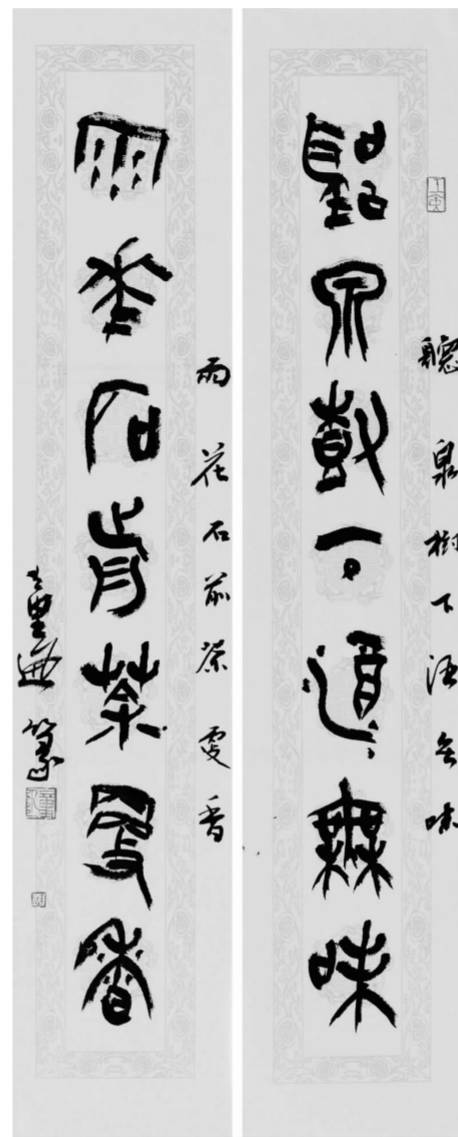 聽泉樹下無味
聽泉樹下道無味
雨花石前茶更香
雨花石前茶更香
篆